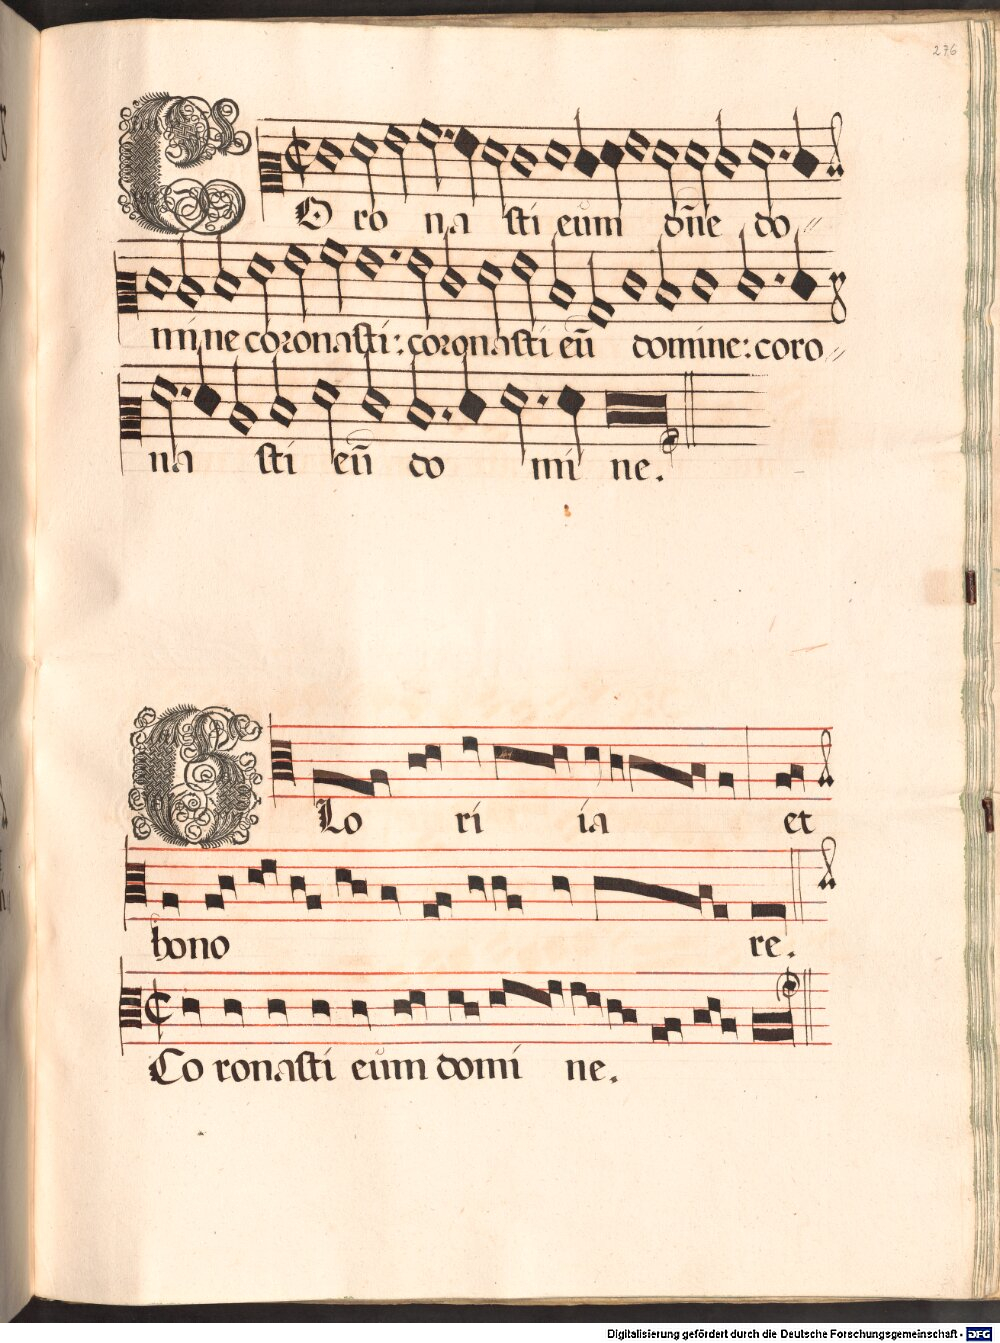 276
CO ro na sti eum dñe do
mi ne coronasti: coronasti eũ domine: coro
na sti eũ do mi ne.
GLo ri ia et
hono re.
Co ronasti eum domi ne.
Digitalisierung gefördert durch die Deutsche Forschungsgemeinschaft - DFG